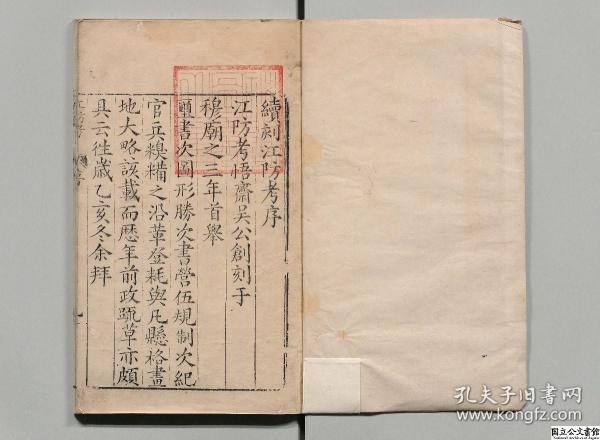 續刻江防考序
江防考悟齋吳公創刻于
穆廟之三年首舉
璽書次圖形勝次書營伍規制次紀
官兵糗糒之沿革登耗與凡懸格畫
地大略該載而歷年前政疏草亦頗
具云徃歲乙亥冬余拜
江防考 序 一
孔夫子旧书网
www.kongfz.com
国立公文書館
National Archives of Japan